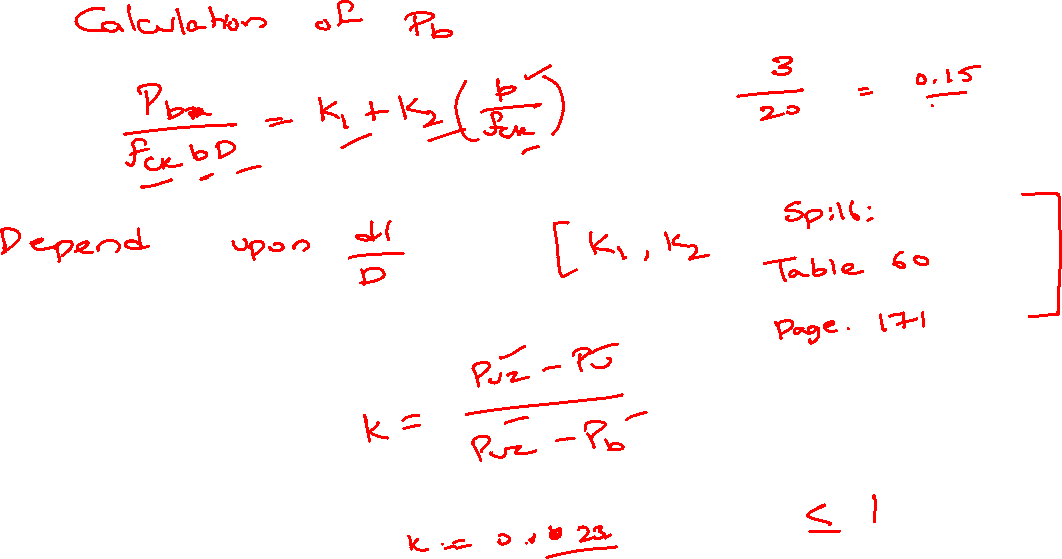 Calculation of Pb
Pb / fck b D = K1 + K2 (b / fck)
3 / 20 = 0.15
Depend upon d' / D
[K1, K2 Sp:16: Table 60 Page. 171]
k = Puz - Pu / Puz - Pb
k = 0. 23
≤ 1